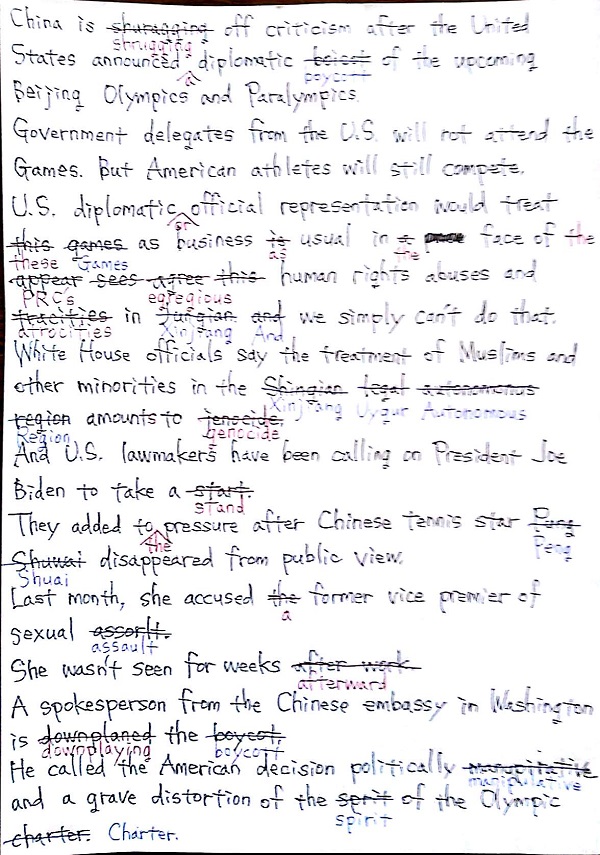 China is shuragging off criticism after the United
shrugging
States announced diplomatic boicot of the upcoming
a boycott
Beijing Olympics and Paralympics.
Government delegates from the U.S. will not attend the
Games. But American athletes will still compete.
U.S. diplomatic official representation would treat
or
this games as business is usual in a face of the
these Games as the
appear sees agree this human rights abuses and
PRC's egregious
tracities in Jurgian and we simply can't do that.
atrocities Xinjiang And
White House officials say the treatment of Muslims and
other minorities in the Shingian legal autonomous
Xinjiang Uygur Autonomous
region amounts to jenocide.
Region genocide
And U.S. lawmakers have been calling on President Joe
Biden to take a start.
stand
They added to pressure after Chinese tennis star Pung
the Peng
Shuwai disappeared from public view.
Shuai
Last month, she accused the former vice premier of
a
sexual assorlt.
assault
She wasn't seen for weeks after work.
afterward
A spokesperson from the Chinese embassy in Washington
is downplaned the boycot.
downplaying boycott
He called the American decision politically manupitative
manipulative
and a grave distortion of the sprit of the Olympic
spirit
charter. Charter.